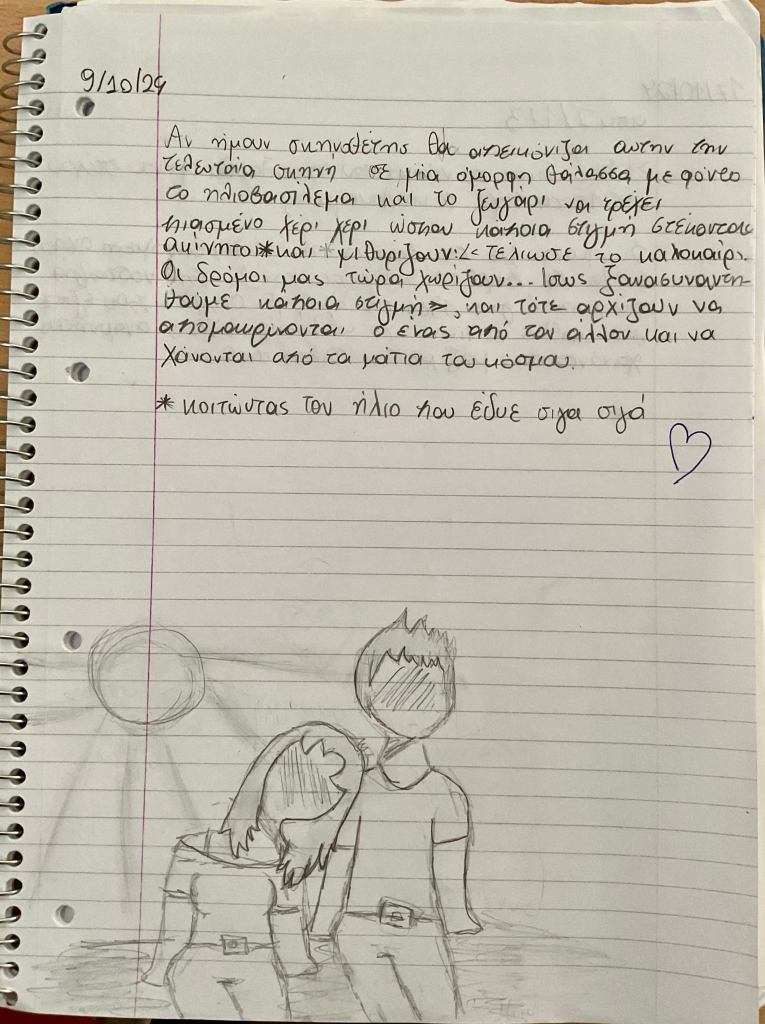 9/10/24
Αν ήμουν σκηνοθέτης θα απεικόνιζα αυτην την
τελευταία σκηνή σε μια όμορφη θάλασσα με φόντο
το ηλιοβασίλεμα και το ζευγάρι να τρέχει
πιασμένο χέρι χέρι ώσπου κάποια στιγμή στέκονται
ακίνητοι*και ψιθυρίζουν:<< τέλιωσε το καλοκαίρι.
Οι δρόμοι μας τώρα χωρίζουν... Ισως ξανασυναντη-
θούμε κάποια στιγμή>>, και τότε αρχίζουν να
απομακρίνονται ο ένας από τον άλλον και να
χάνονται από τα μάτια του κόσμου.
* κοιτώντας τον ήλιο που έδυε σιγα σιγά